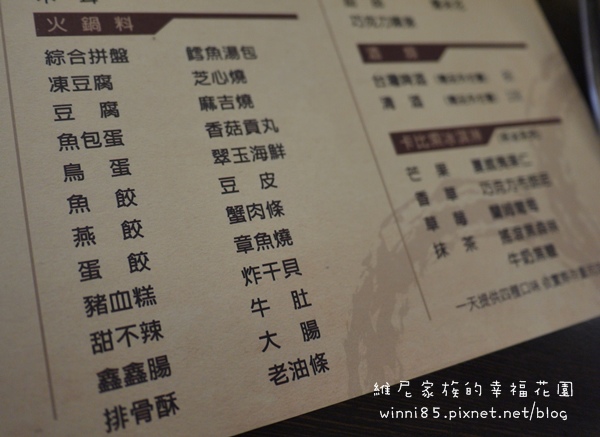 火鍋料
綜合拼盤
凍豆腐
豆腐
魚包蛋
鳥蛋
魚餃
燕餃
蛋餃
豬血糕
甜不辣
鑫鑫腸
排骨酥
鱈魚湯包
芝心燒
麻吉燒
香菇貢丸
翠玉海鮮
豆皮
蟹肉條
章魚燒
炸干貝
牛肚
大腸
老油條
台灣啤酒
清酒
芒果
香草
草莓
抹茶
夏威夷果仁
巧克力布朗尼
蘭姆葡萄
牛奶焦糖
一天提供四種口味
維尼家族的幸福花園
winni85.pixnet.net/blog